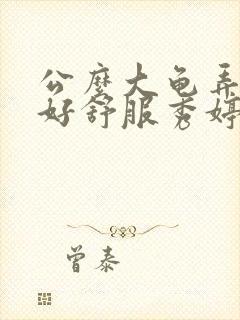 公麽大龟弄
好舒服秀婷
曾泰